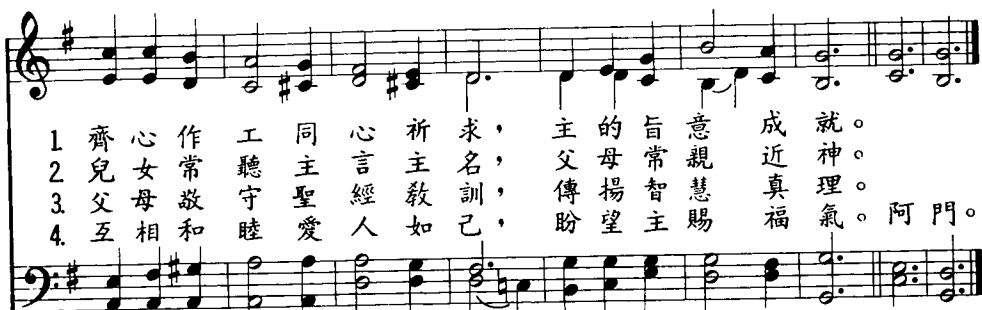 1. 齊心作工同心祈求，主的旨意成就。
2. 兒女常聽主言主名，父母常親近神。
3. 父母敬守聖經教訓，傳揚智慧真理。
4. 互相和睦愛人如己，盼望主賜福氣。阿門。